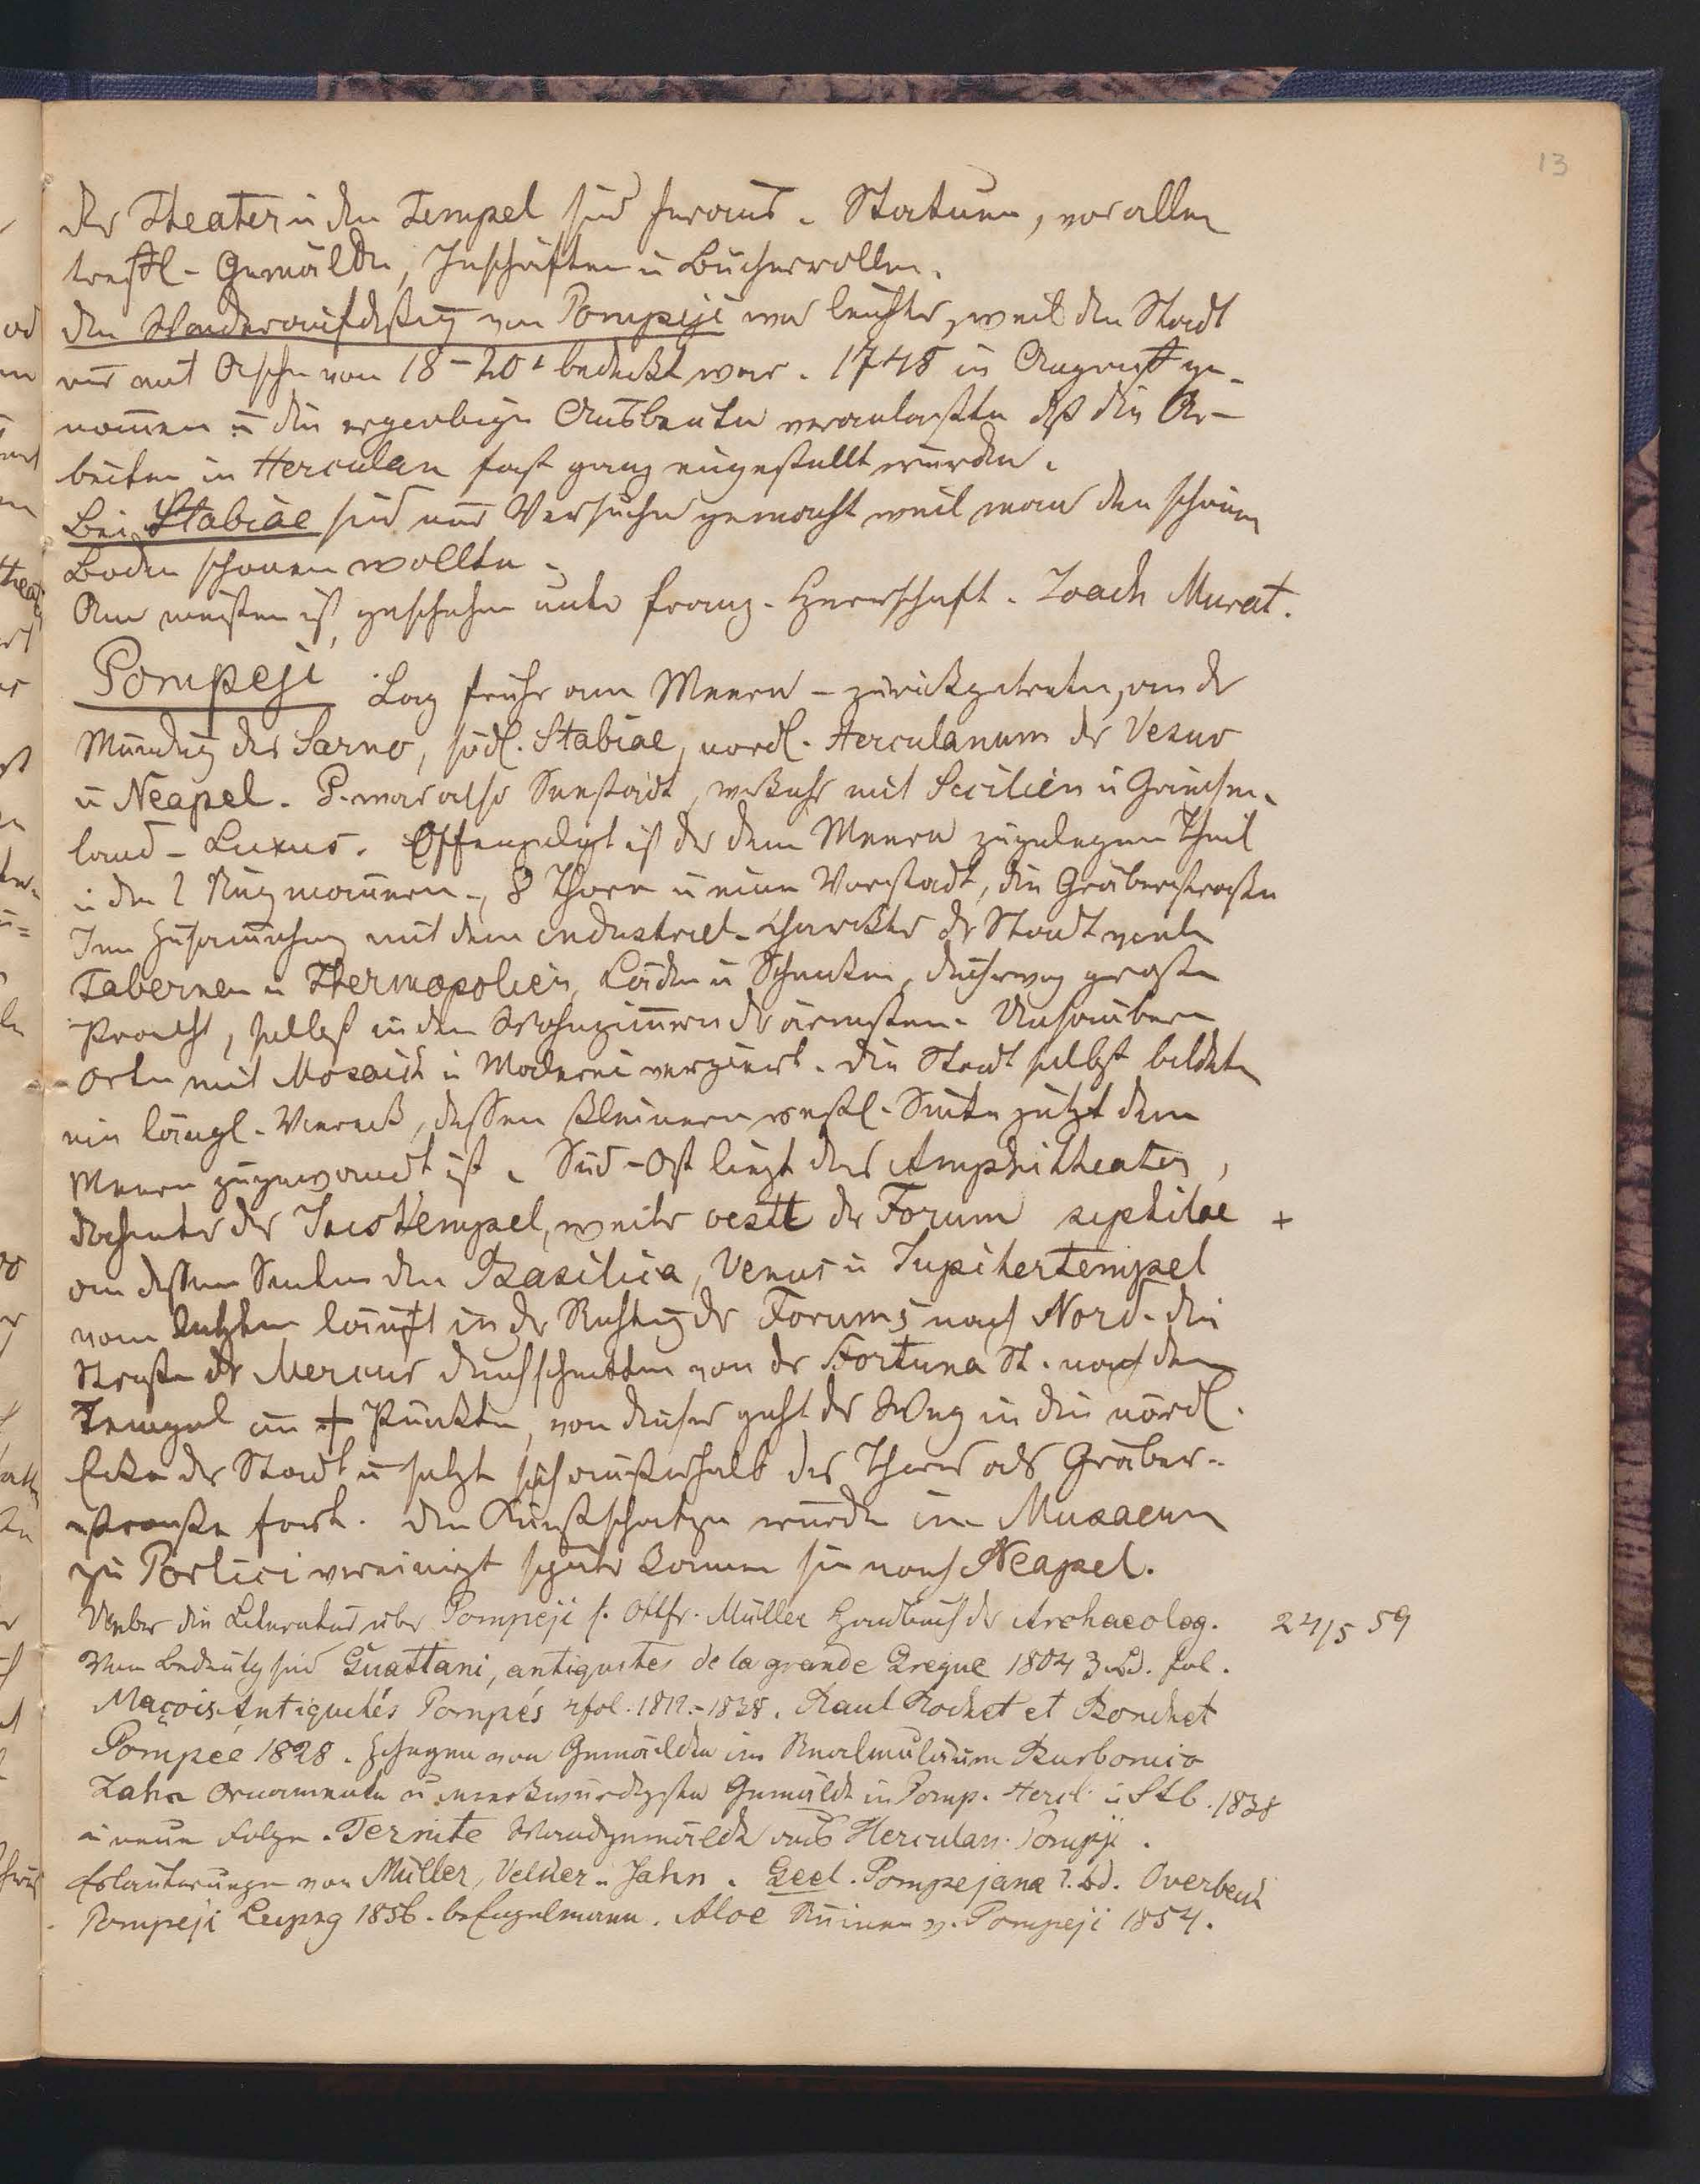 13
der Theater u den Tempel sind heraus. Statuen, vor allen
treffl. Gemälde, Inschriften u Bücherrollen.
Die Wiederaufdeckung von Pompeji war leichter, weil die Stadt
nur mit Asche von 18-20' bedeckt war. 1748 in Angriff ge-
nom̄en u die ergiebige Ausbeute veranlasste dß die Ar-
beiten in Herculan fast ganz eingestellt wurden.
Bei Stabiae sind nur Versuche gemacht weil man den schönen
Boden schonen wollte.
Am meisten ist geschehen unter franz. Herrschaft. Joach Murat.
Pompeji Lag früher am Meere - zurückgetreten, an der
Mündung des Sarno, südl. Stabiae, nördl. Herculanum der Vesuv
u Neapel. P. war also Seestadt, Verkehr mit Sicilien u Griechen-
land - Luxus. Offengelegt ist der dem Meere zugelegene Theil
u die 2 Ringmauern, 8 Thore u eine Vorstadt, die Gräberstrasse
Im Zusam̄enhang mit dem industriel. Charakter der Stadt viele
Tabernen u Thermopolien, Läden u Schenken, durchweg grosse
Pracht, selbst in den Wohnzim̄ern der ärmsten. Unsaubere
Orte mit Mosaick u Malerei verziert. Die Stadt selbst bildete
ein längl. Viereck, dessen kleinere westl. Seite jetzt dem
Meere zugewandt ist. Süd-Ost liegt das Amphitheater,
dahinter der Isistempel, weiter westl das Forum +
an dessen Seiten die Basilica, Venus u Jupitertempel
vom letzten läuft in der Richtung des Forums nach Nord. die
Strasse des Mercur durchschnitten von der Fortuna St. nach dem
Tempel im + Punkte, von dieser geht der Weg in die nördl.
Ecke der Stadt u setzt sich ausserhalb des Thores als Gräber-
strasse fort. Die Kunstschätze wurden im Musaeum
zu Portici vereinigt später kamen sie nach Neapel.
Ueber die Literatur über Pompeji s. Ottfr. Müller Handbuch der Archaeolog. 24/5 59
Von Bedeutg sind Guattani, antiquites de la grande Gregue 1804 3 Bd. fol.
Maçois Antiquités Pompés 4 fol. 1812-1838. Raul Rochet et Bouchet
Pompee 1828. von Gemälden im Realmuseum Burbonico
Zahn Ornamente u merkwürdigste Gemälde in Pomp. Hercl. u Stb. 1828
u neue Folge. Ternite Wandgemälde aus Herculan. Pompji.
Erläuterungen von Müller, Velker u Jahn. Geel. Pompejana 2. Bd. Overbeck
Pompeji Leipzg 1856. b. Engelmann. Aloe Ruinen v. Pompeji 1854.